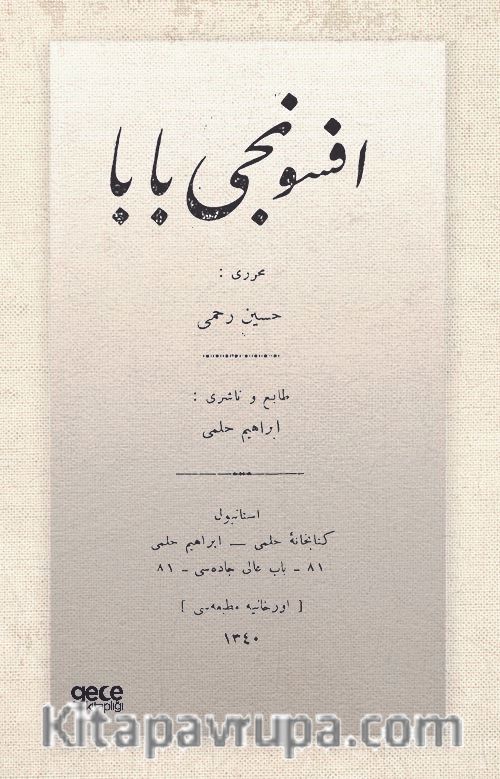 افسونجی بابا
محرری :
حسین رحمی
طابع و ناشری :
ابراهیم حلمی
استانبول
کتابخانۀ حلمی — ابراهیم حلمی
٨١ - باب عالی جاده‌سی - ٨١
[ اورخانیه مطبعه‌سی ]
١٣٤٠
gece
kitaplığı
Kitapavrupa.com